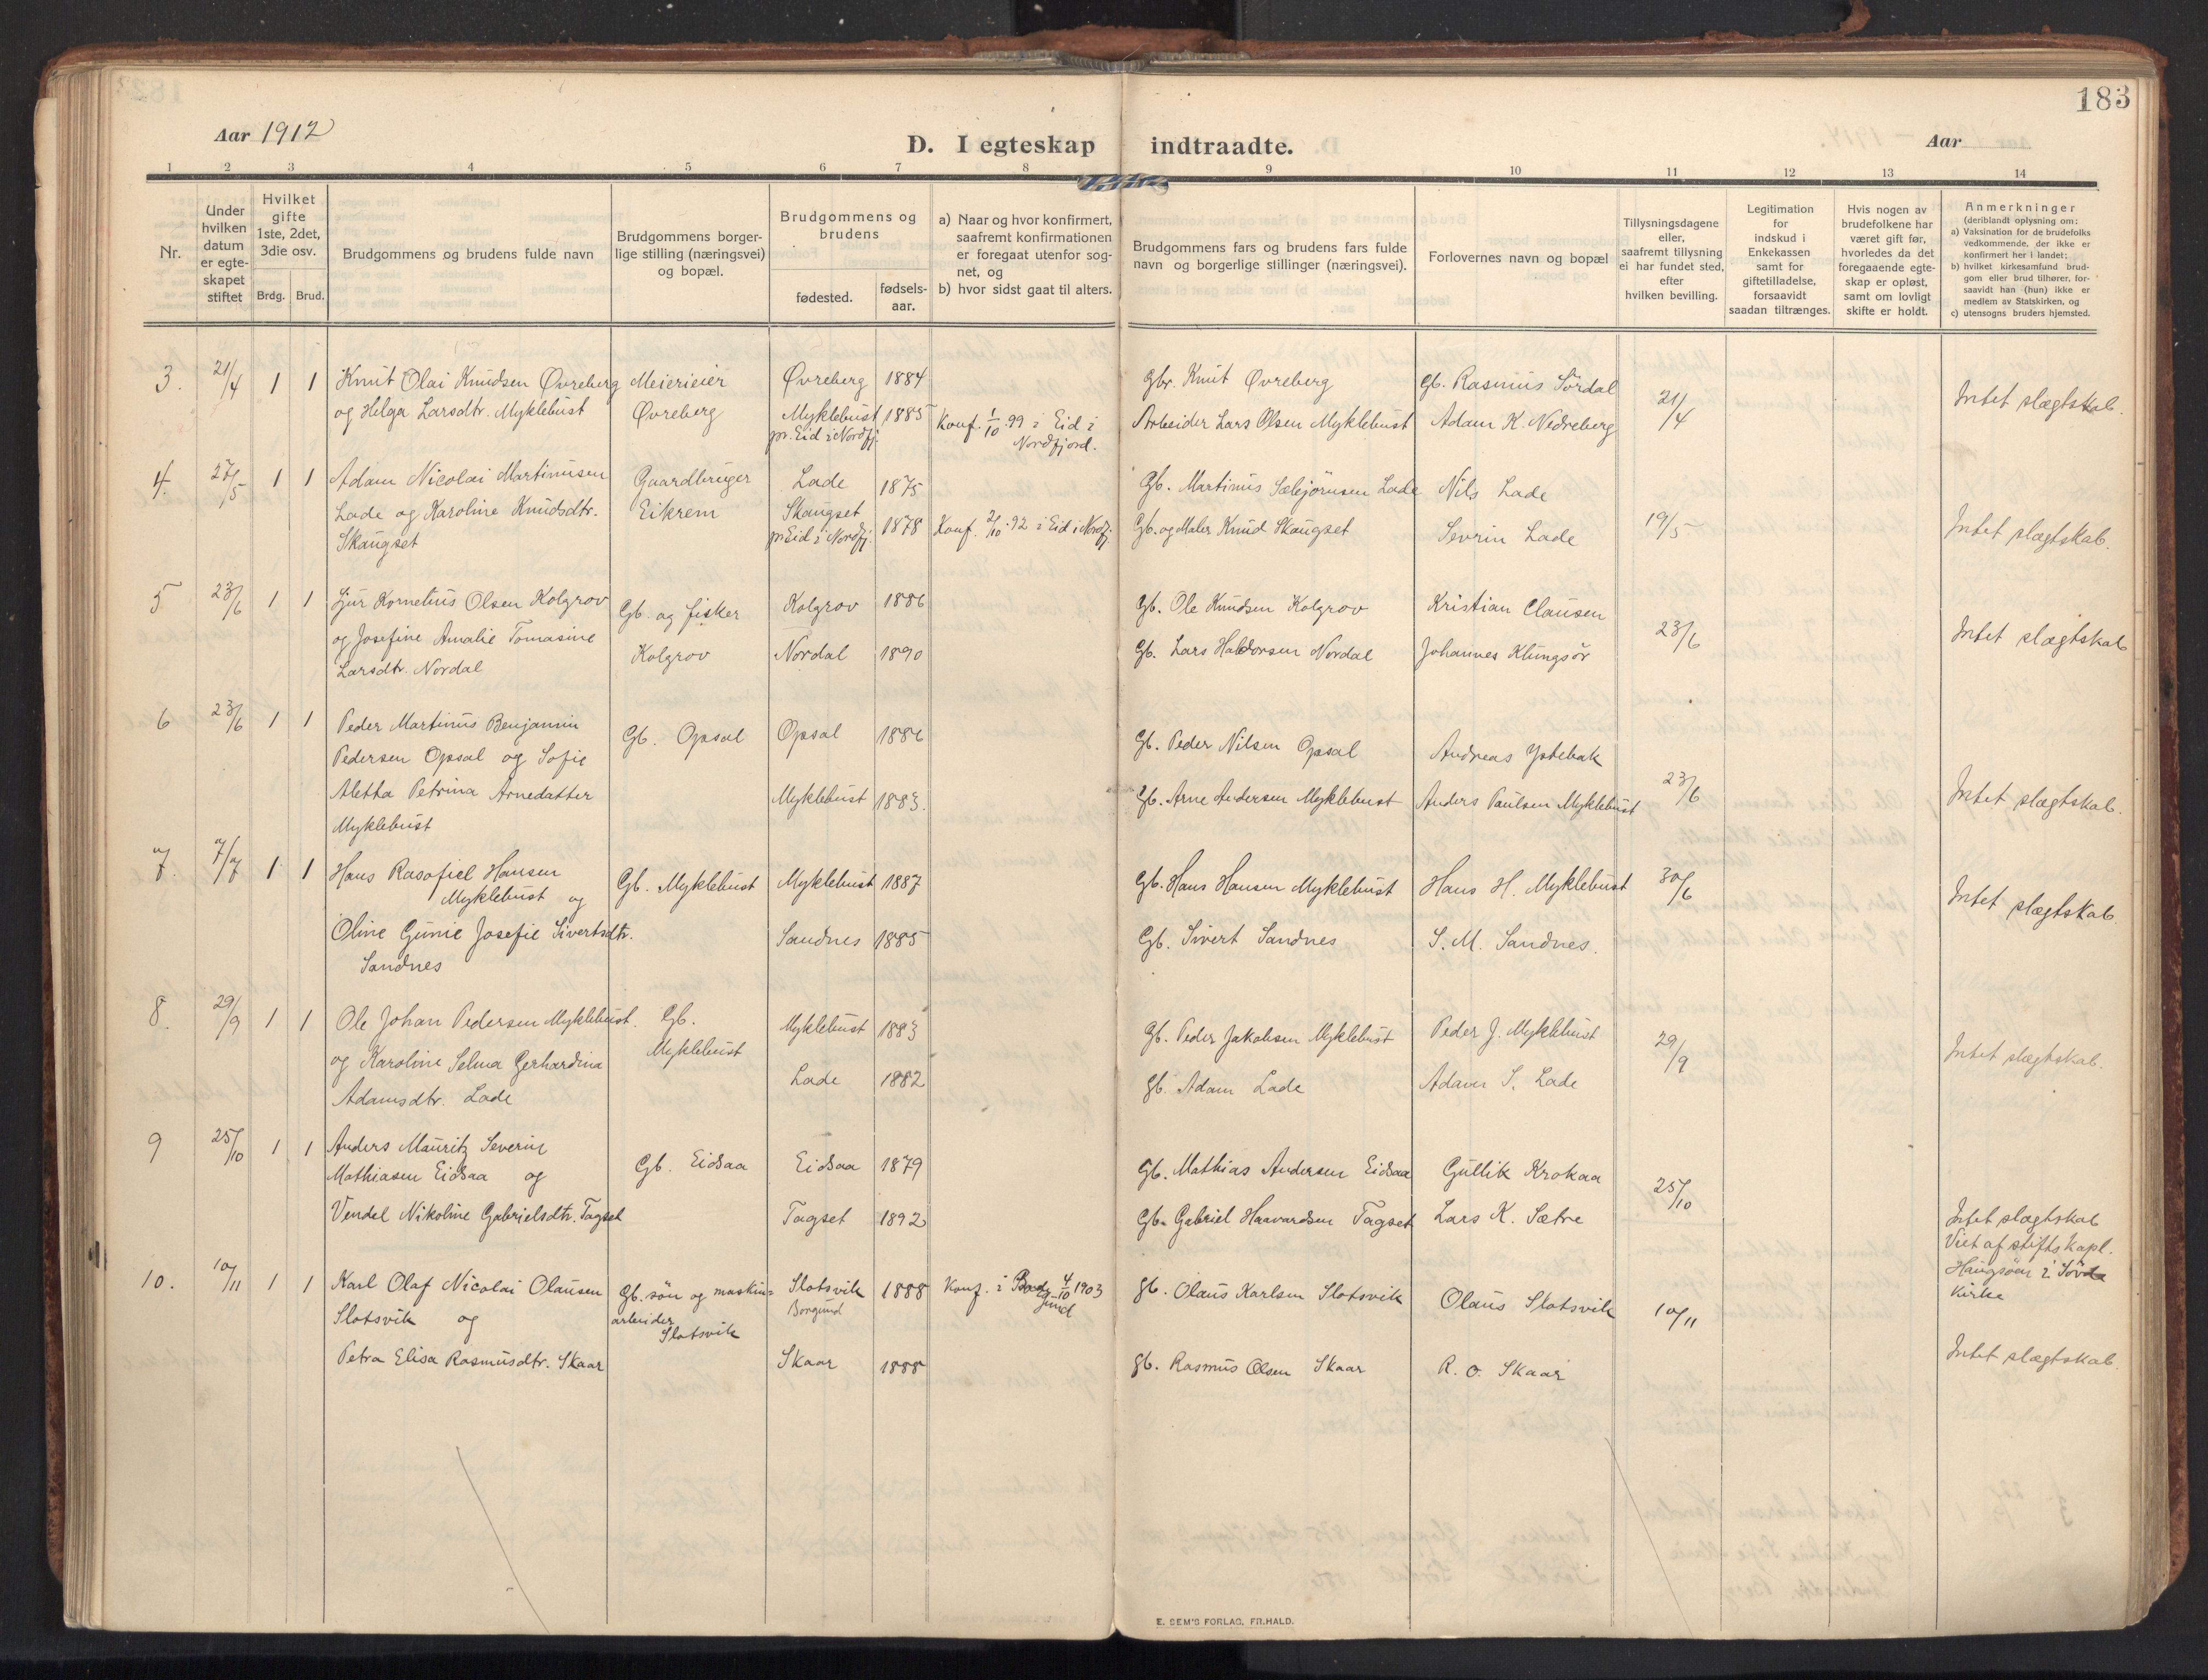 183
Aar 1912
D. I egteskap indtraadte.
Aar
1 2 3 4 5 6 7 8 9 10 11 12 13 14
Nr.
Under
hvilken
datum
er egte-
skapet
stiftet
Hvilket
gifte
1ste, 2det,
3die osv.
Brdg. Brud.
Brudgommens og brudens fulde navn
Brudgommens borger-
lige stilling (næringsvei)
og bopæl.
Brudgommens og
brudens
fødested.
fødsels-
aar.
a) Naar og hvor konfirmert,
saafremt konfirmationen
er foregaat utenfor sog-
net, og
b) hvor sidst gaat til alters.
Brudgommens fars og brudens fars fulde
navn og borgerlige stillinger (næringsvei).
Forlovernes navn og bopæl
Tillysningsdagene
eller,
saafremt tillysning
ei har fundet sted,
efter
hvilken bevilling.
Legitimation
for
indskud i
Enkekassen
samt for
giftetilladelse,
forsaavidt
saadan tiltrænges.
Hvis nogen av
brudefolkene har
været gift før,
hvorledes da det
foregaaende egte-
skap er opløst,
samt om lovligt
skifte er holdt.
Anmerkninger
(deriblandt oplysning om:
a) Vaksination for de brudefolks
vedkommende, der ikke er
konfirmert her i landet;
b) hvilket kirkesamfund brud-
gom eller brud tilhører, for-
saavidt han (hun) ikke er
medlem av Statskirken, og
c) utensogns bruders hjemsted.
3. 21/4 1 1 Knut Olai Knudsen Øvreberg Meierieier Øvreberg 1884 Gbr. Knut Øvreberg Gb. Rasmus Sördal 21/4 Intet slægtskab.
og Helga Larsdtr. Myklebust Øvreberg Myklebust 1885 Konf. 1/10.99 i Eid i Arbeider Lars Olsen Myklebust Adam K. Nedreberg
pr. Eid i Nordfj. Nordfjord.
4. 27/5 1 1 Adam Nicolai Martinusen Gaardbruger Lade 1875 Gb. Martinus Sæbjörnsen Lade Nils Lade
Lade og Karoline Knudsdtr. Eikrem Skaugset 1878 Konf. 2/10.92 i Eid i Nordfj. Gb. og Maler Knud Skaugset Sevrin Lade 19/5 Intet slægtskab.
Skaugset pr Eid i Nordfj.
5 23/6 1 1 Sjur Kornelius Olsen Kolgrov Gb. og fisker Kolgrov 1886 Gb. Ole Knudsen Kolgrov Kristian Clausen
og Josefine Amalie Tomasine Kolgrov Nordal 1890 Gb. Lars Haldorsen Nordal Johannes Klungsör 23/6 Intet slægtskab
Larsdtr. Nordal
6 23/6 1 1 Peder Martinus Benjamin Gb. Opsal Opsal 1886 Gb. Peder Nilsen Opsal Andreas Ystebak
Pedersen Opsal og Sofie
Aletta Petrina Arnedatter Myklebust 1883. Gb. Arne Andersen Myklebust Anders Paulsen Myklebust 23/6 Intet slægtskab.
Myklebust
7. 7/7 1 1 Hans Rasofiel Hansen Gb. Myklebust Myklebust 1887 Gb. Hans Hansen Myklebust Hans H. Myklebust 30/6 Intet slægtskab.
Myklebust og
Oline Gunie Josefie Sivertsdtr. Sandnes 1885 Gb. Sivert Sandnes S. M. Sandnes.
Sandnes
8. 29/9 1 1 Ole Johan Pedersen Myklebust. Gb. Myklebust 1883 Gb. Peder Jakobsen Myklebust Peder J. Myklebust 29/9 Intet slægtskab.
og Karoline Selma Gerhardina Myklebust Lade 1882 Gb. Adam Lade Adam S. Lade
Adamsdtr. Lade
9 25/10 1 1 Anders Mauritz Severin
Mathiasen Eidsaa og Gb. Eidsaa Eidsaa 1879 Gb. Mathias Andersen Eidsaa Gullik Krokaa 25/10
Vendel Nikoline Gabrielsdtr. Tagset Tagset 1892 Gb. Gabriel Haavardsen Tagset Lars K. Sætre Intet slægtskab
Viet af stiftskapl.
Haugsöen i Sörde
kirke
10. 10/11 1 1 Karl Olaf Nicolai Olausen Gb. sön og maskin= Slotsvik 1888 Konf. i Borgund 4/10 1903 Gb. Olaus Karlsen Slotsvik Olaus Slotsvik 10/11
Slotsvik og arbeider Slotsvik Borgund
Petra Elisa Rasmusdtr. Skaar Skaar 1888 Gb. Rasmus Olsen Skaar R. O. Skaar Intet slægtskab.
E. SEM'S FORLAG, FR.HALD.